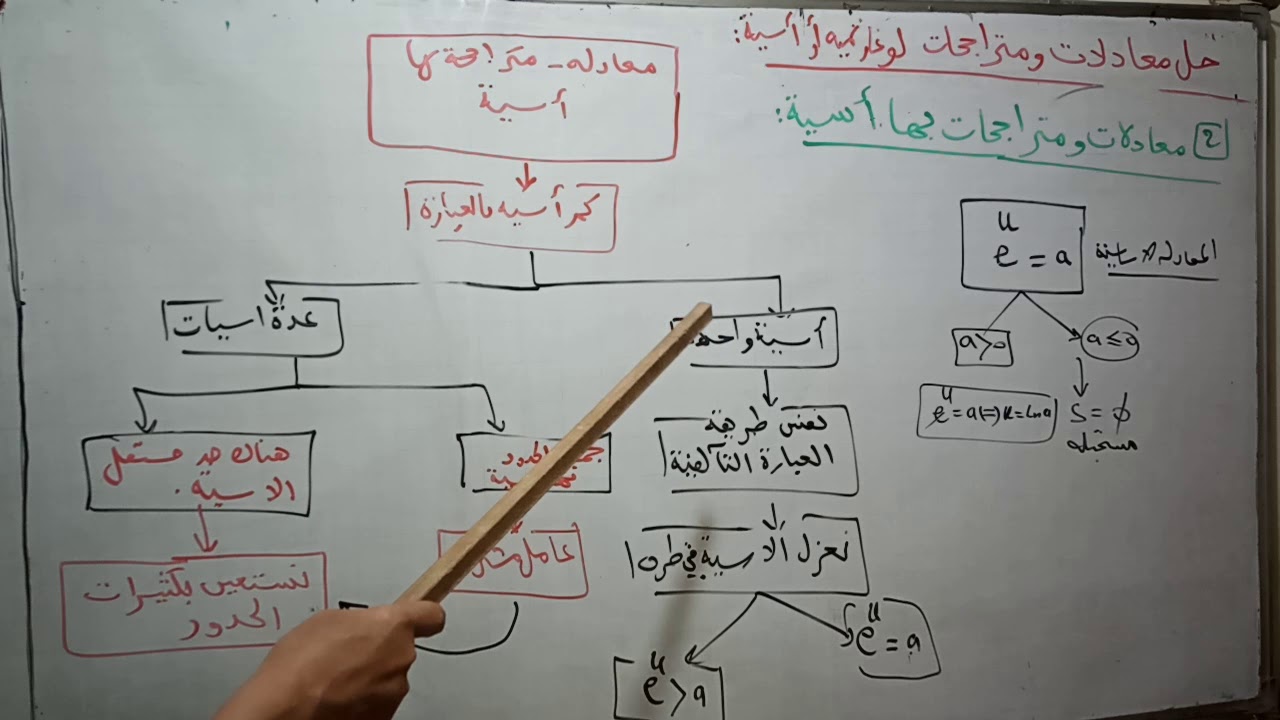 حل معادلات ومتراجحات لوغارتمية أو أسية:
2 معادلات ومتراجحات بها أسية:
معادلة - متراجحة بها
أسية
كم أسية بالعبارة
أسية واحدة
عدة اسيات
نفس طريقة
العبارة التآلفية
نعزل الأسية في طرف
e^u = a
e^u > a
جميع الحدود
بها أسية
عامل مشترك
هناك حد مستقل
الاسية .
نستعين بكثيرات
الحدود
المعادلة الأساسية
e^u = a
a>0
a≤0
e^u = a ⇔ u = ln a
S = ϕ
مستحيلة